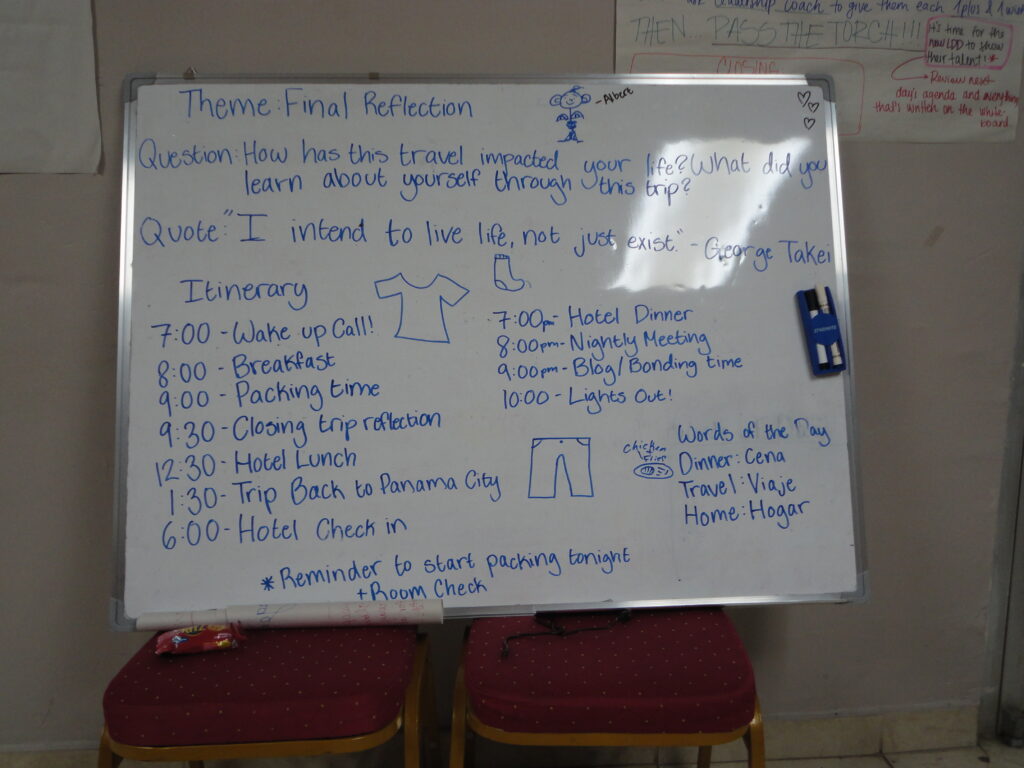 ask leadership coach to give them each 1 plus & 1 wish
THEN... PASS THE TORCH!!!
It's time for the
new LDD to show
their talent! *
CLOSING
Review next
day's agenda and everything
that's written on the white-
board.
Theme: Final Reflection
- Albert
Question: How has this travel impacted your life? What did you
learn about yourself through this trip?
Quote: "I intend to live life, not just exist." - George Takei
Itinerary
7:00 - Wake up Call!
8:00 - Breakfast
9:00 - Packing time
9:30 - Closing trip reflection
12:30 - Hotel Lunch
1:30 - Trip Back to Panama City
6:00 - Hotel Check in
7:00pm - Hotel Dinner
8:00pm - Nightly Meeting
9:00pm - Blog/Bonding time
10:00 - Lights Out!
chicken
Fries
Words of the Day
Dinner: Cena
Travel: Viaje
Home: Hogar
* Reminder to start packing tonight
+ Room Check